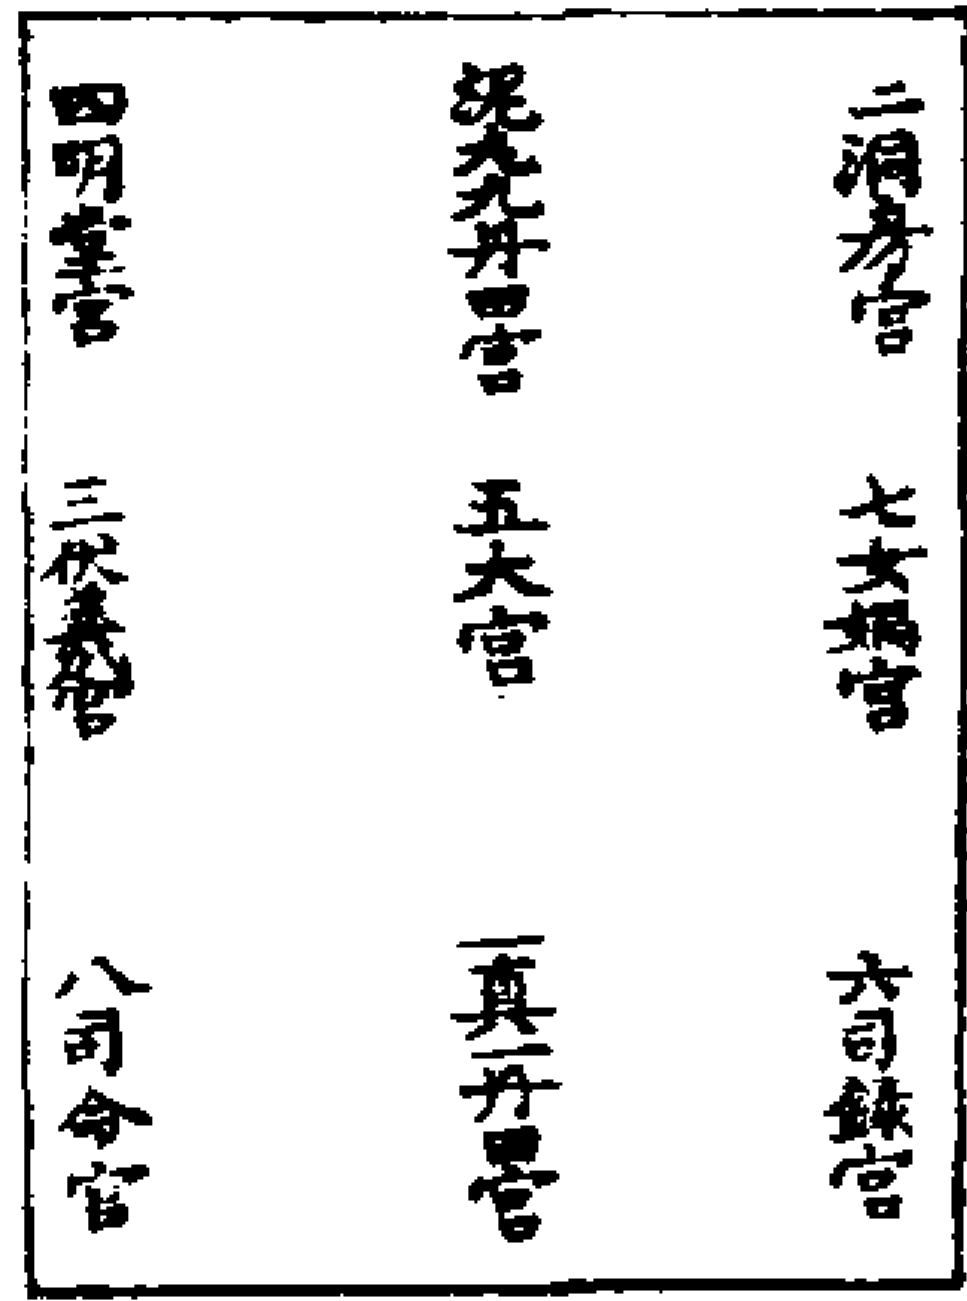 二洞房宮
七女媧宮
六司錄宮
泥丸九丹田宮
五大宮
一真一丹田宮
四明堂宮
三伏羲宮
八司命宮